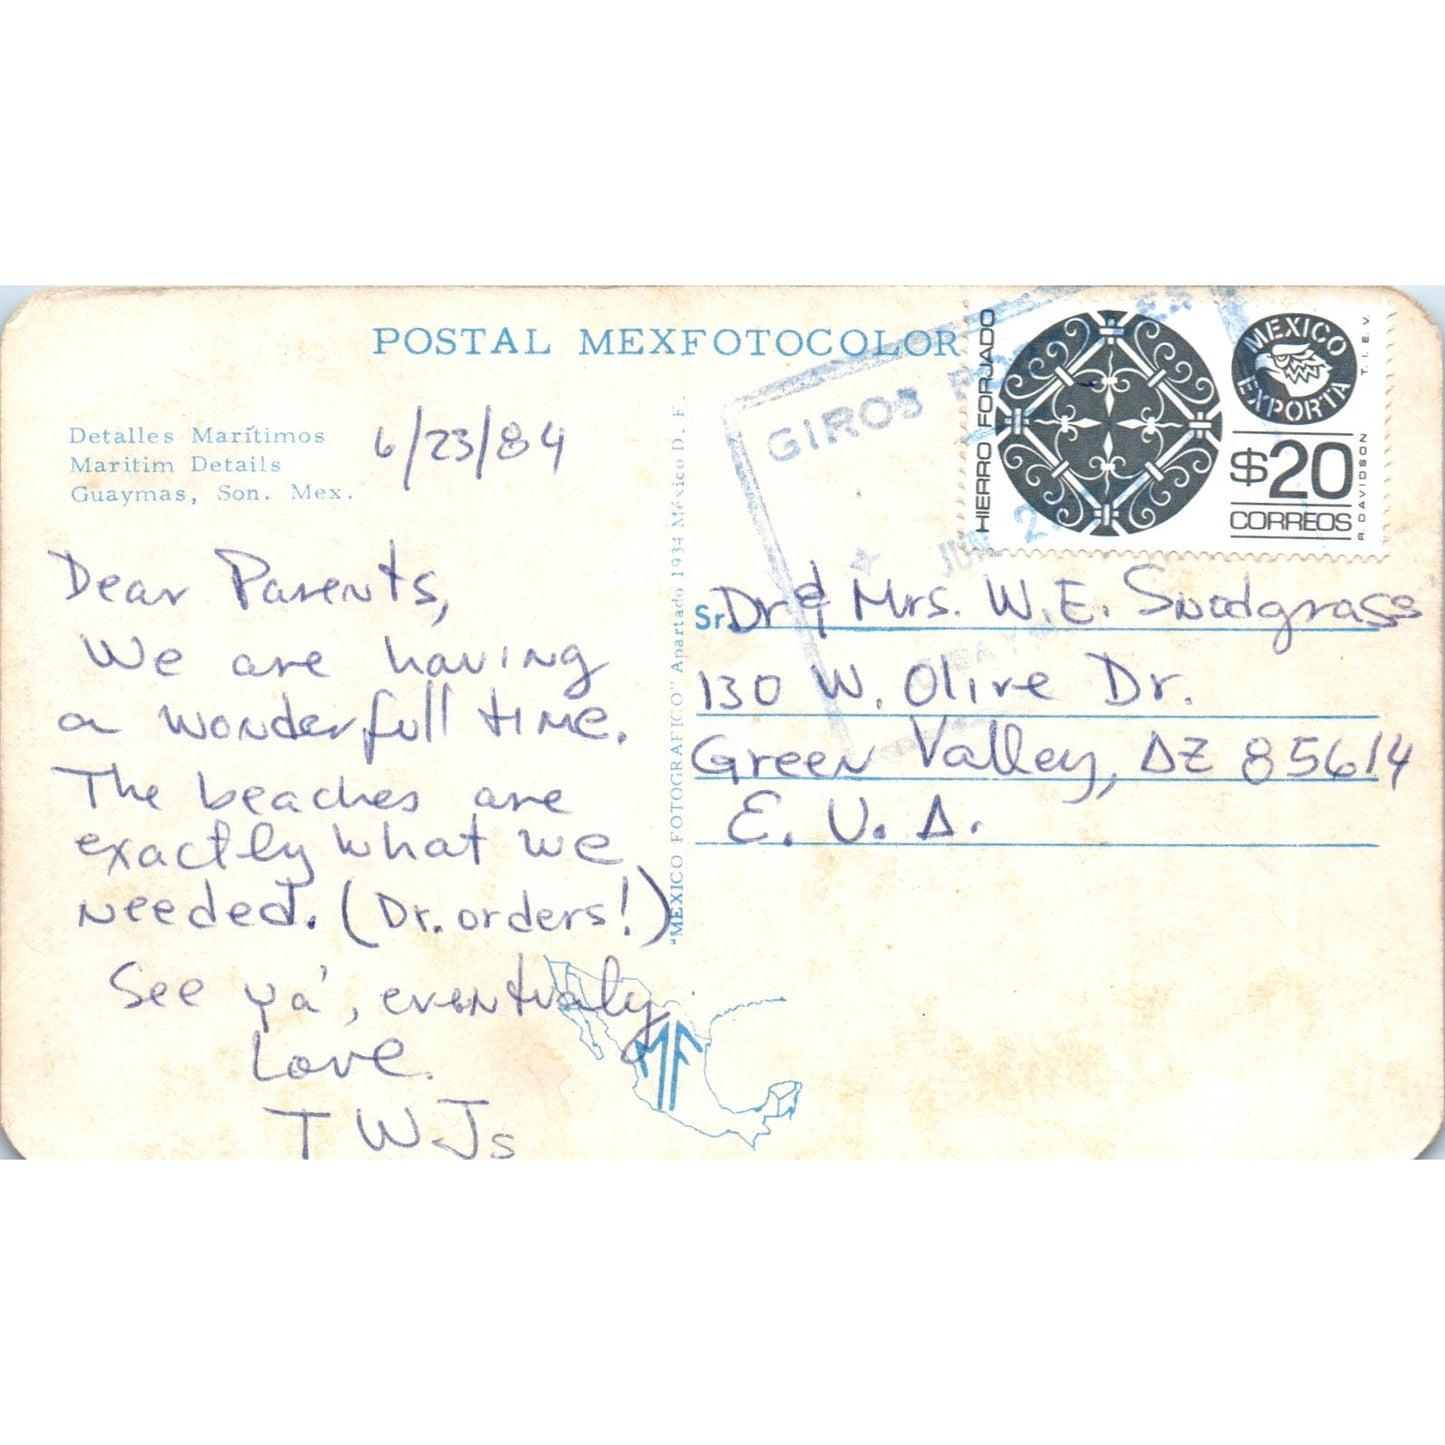 POSTAL MEXFOTOCOLOR
Detalles Marítimos
Maritim Details
Guaymas, Son. Mex.
6/23/84
Dear Parents,
We are having
a wonderfull time.
The beaches are
exactly what we
needed. (Dr. orders!)
See ya', eventualy
Love.
T W Js
"MEXICO FOTOGRAFICO" Apartado 1934 México D. F.
MF
GIROS
JUN 2
HIERRO FORJADO
MEXICO EXPORTA
$20
CORREOS
T.I.E.V.
R. DAVIDSON
Sr. Dr & Mrs. W. E. Snodgrass
130 W. Olive Dr.
Green Valley, AZ 85614
E. U. A.